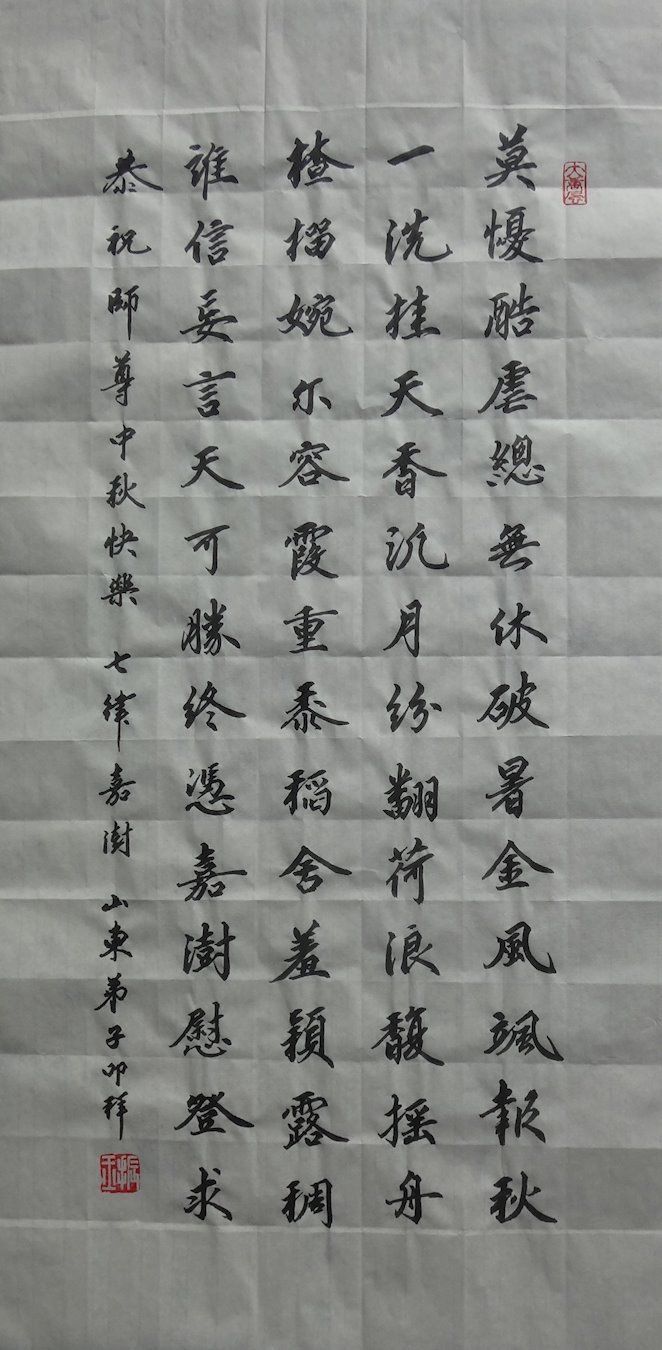 莫憂酷虐總無休破暑金風颯報秋
一洗桂天香沉月紛翻荷浪馥搖舟
楂榴婉尓容霞重黍稻含羞穎露稠
誰信妄言天可勝終憑嘉澍慰登求
恭祝師尊中秋快樂 七律嘉澍 山東弟子叩拜